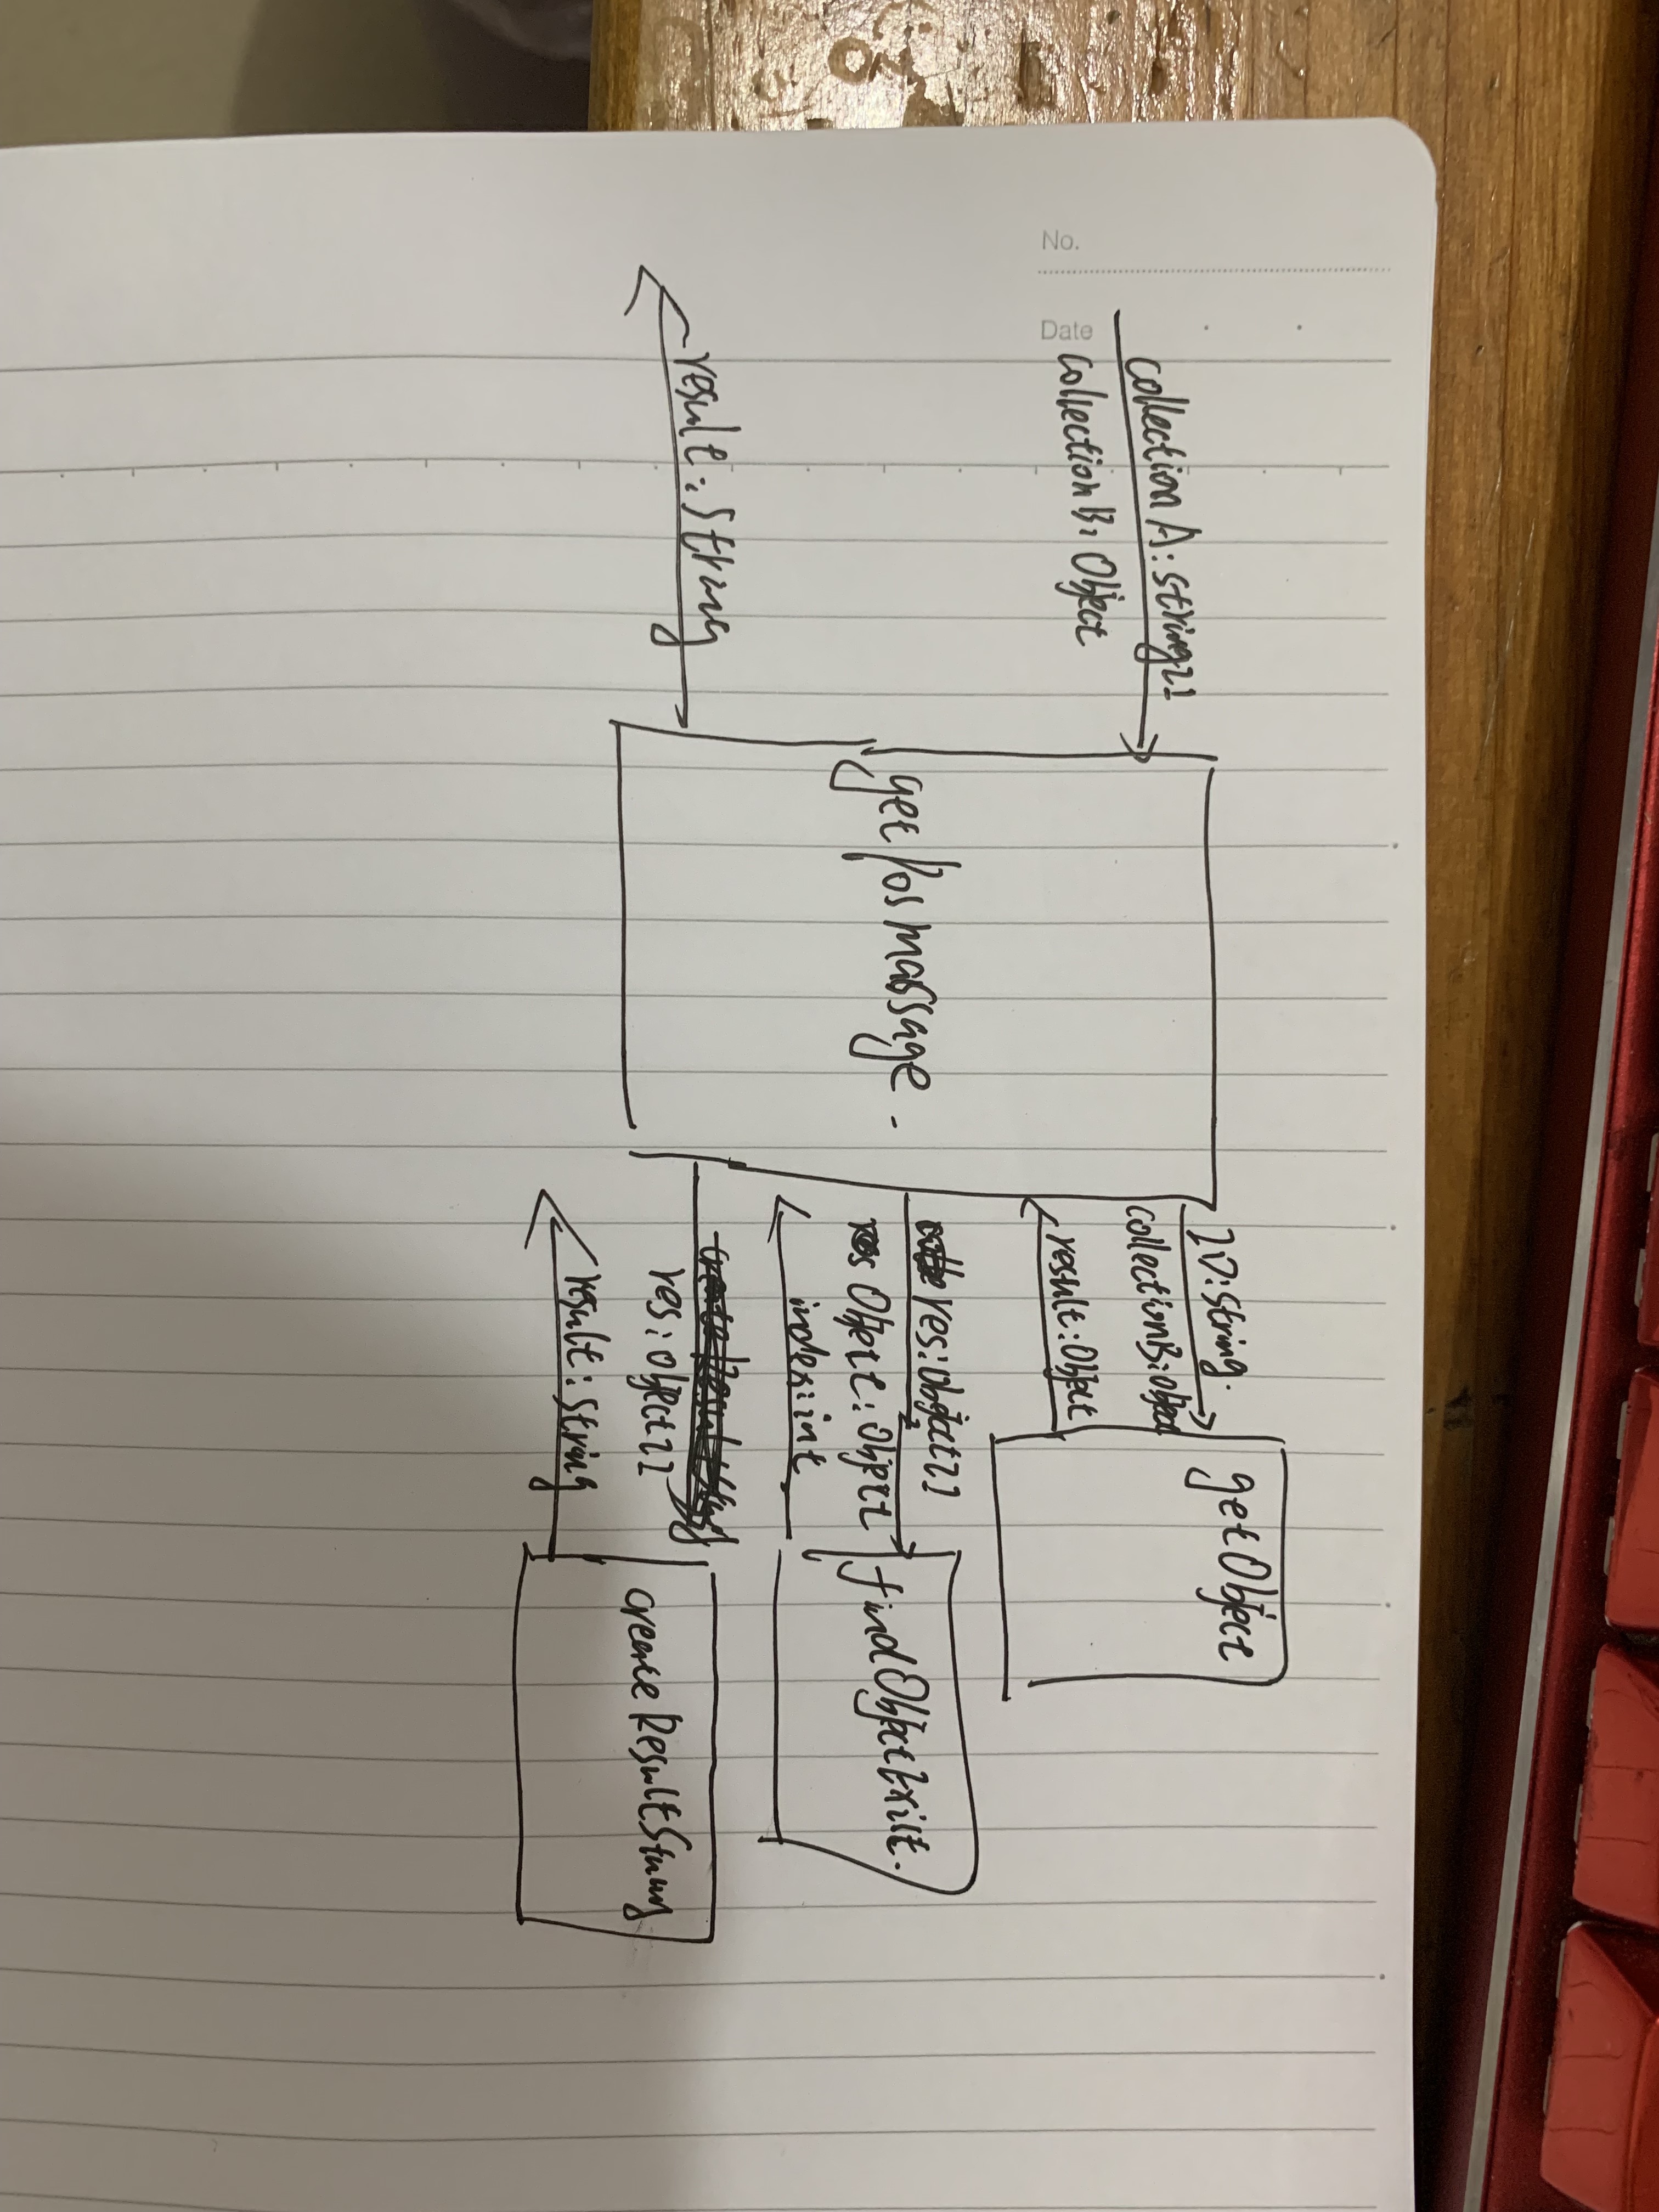 No.
Date
collectionA:string[]
collectionB:Object
result:String
getPosmassage.
ID:string.
collectionB:object
result:Object
getObject
res:object[]
resObject:Object
index:int
findObjectExist.
res:object[]
result:String
createResultString